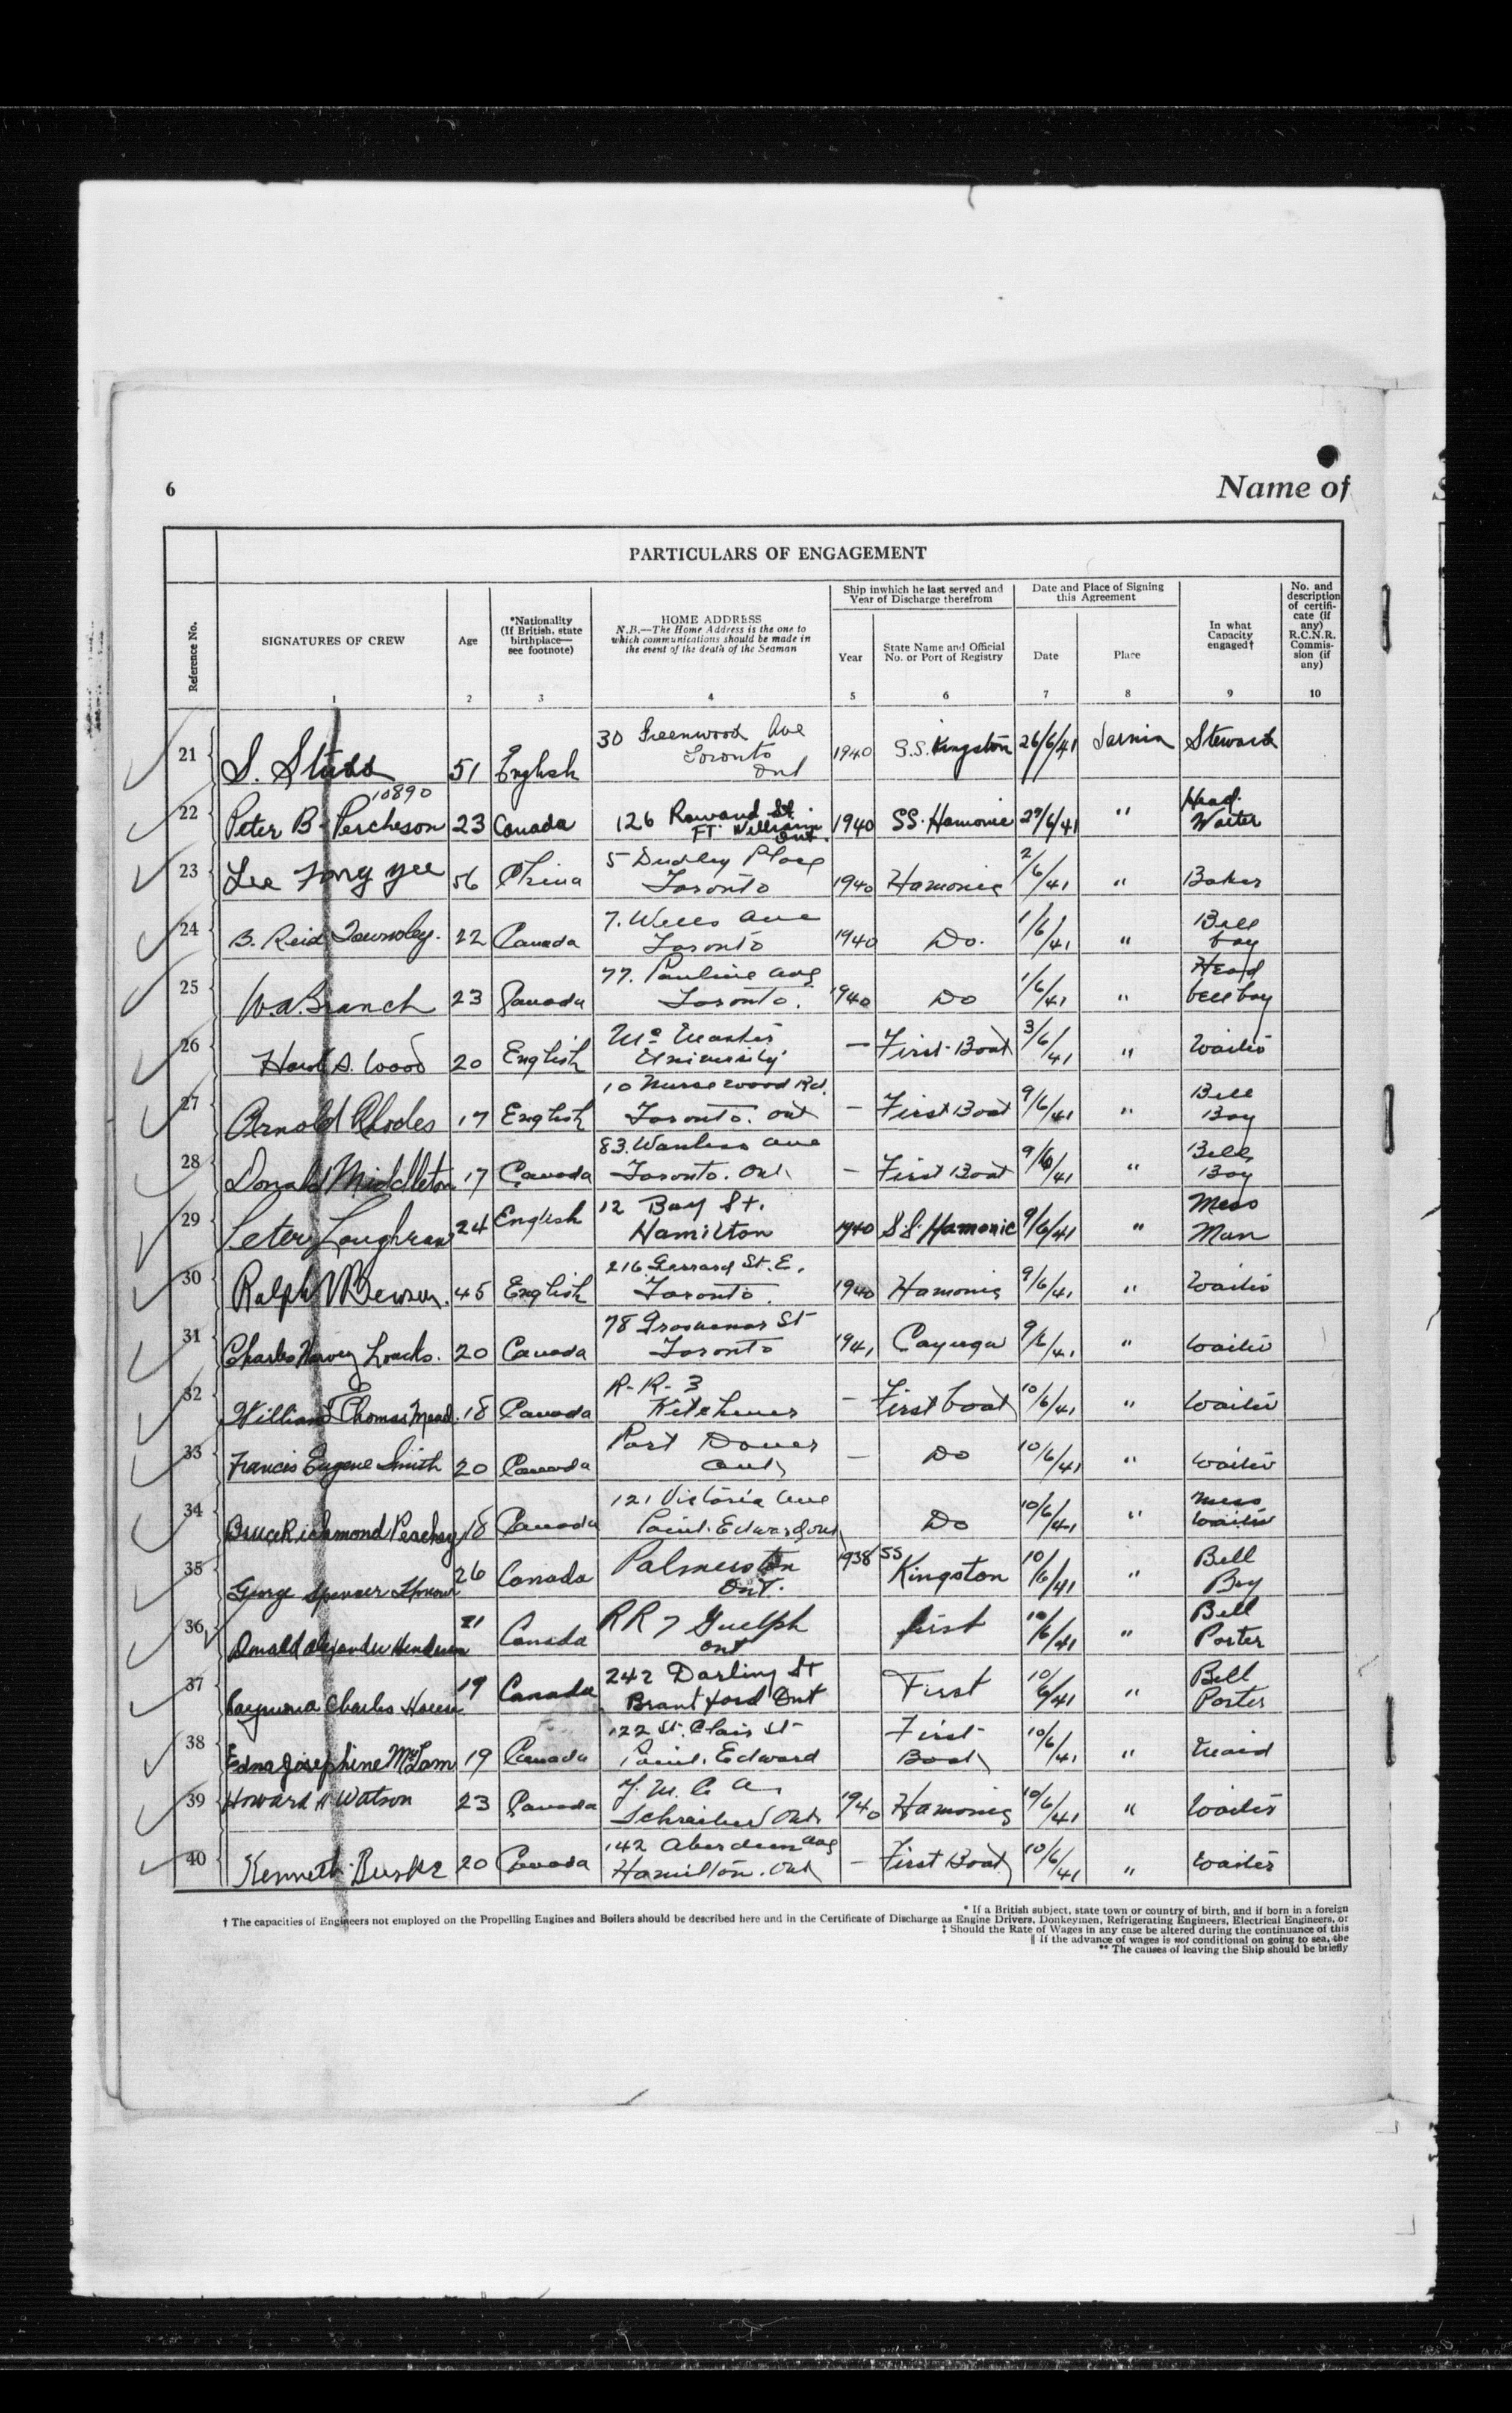 6
Name of
PARTICULARS OF ENGAGEMENT
Reference No.
SIGNATURES OF CREW
1
Age
2
*Nationality
(If British, state
birthplace—
see footnote)
3
HOME ADDRESS
N.B.—The Home Address is the one to
which communications should be made in
the event of the death of the Seaman
4
Ship inwhich he last served and
Year of Discharge therefrom
Year
5
State Name and Official
No. or Port of Registry
6
Date and Place of Signing
this Agreement
Date
7
Place
8
In what
Capacity
engaged†
9
No. and
description
of certifi-
cate (if
any)
R.C.N.R.
Commis-
sion (if
any)
10
21 S. Stubbs 51 English 30 Greenwood Ave Toronto Ont 1940 S.S. Kingston 26/6/41 Sarnia Steward
22 Peter B. Percheson 10890 23 Canada 126 Rowand St. FT. William Ont. 1940 SS. Hamonic 29/6/41 " Head Waiter
23 Lee Fong Yee 56 China 5 Dudley Place Toronto 1940 Hamonic 2/6/41 " Baker
24 B. Reid Townsley. 22 Canada 7. Wells Ave Toronto 1940 Do. 1/6/41 " Bell boy
25 W.A. Branch 23 Canada 77. Pauline Ave Toronto. 1940 Do 1/6/41 " Head bell boy
26 Harold S. Wood 20 English Mc Master University — First Boat 3/6/41 " Waiter
27 Arnold Rhodes 17 English 10 Nursewood Rd. Toronto. Ont — First Boat 9/6/41 " Bell Boy
28 Donald Middleton 17 Canada 83. Wanless Ave Toronto. Ont — First Boat 9/6/41 " Bell Boy
29 Peter Loughran 24 English 12 Bay St. Hamilton 1940 S.S. Hamonic 9/6/41 " Mess Man
30 Ralph 45 English 216 Gerrard St. E. Toronto. 1940 Hamonic 9/6/41 " Waiter
31 Charles Harvey Loucks. 20 Canada 78 Grosvenor St Toronto 1941 Cayuga 9/6/41 " Waiter
32 William Thomas Mead. 18 Canada R. R. 3 Kitchener — First boat 10/6/41 " Waiter
33 Francis Eugene Smith 20 Canada Port Dover Ont — Do 10/6/41 " Waiter
34 Bruce Richmond Peachey 18 Canada 121 Victoria Ave Point. Edward Ont Do 10/6/41 " Mess Waiter
35 George Spencer 26 Canada Palmerston Ont. 1938 SS Kingston 10/6/41 " Bell Boy
36 Donald Alexander Henderson 21 Canada RR 7 Guelph Ont first 10/6/41 " Bell Porter
37 Raymond Charles House 19 Canada 242 Darling St Brantford Ont First 10/6/41 " Bell Porter
38 Edna Josephine McLam 19 Canada 122 St. Clair St Point. Edward First Boat 10/6/41 " Maid
39 Howard H Watson 23 Canada Y. M. C. A. Schreiber Ont. 1940 Hamonic 10/6/41 " Waiter
40 Kenneth 20 Canada 142 Aberdeen Ave Hamilton. Ont — First Boat 10/6/41 " Waiter
* If a British subject, state town or country of birth, and if born in a foreign
† The capacities of Engineers not employed on the Propelling Engines and Boilers should be described here and in the Certificate of Discharge as Engine Drivers, Donkeymen, Refrigerating Engineers, Electrical Engineers, or
‡ Should the Rate of Wages in any case be altered during the continuance of this
‖ If the advance of wages is not conditional on going to sea, the
** The causes of leaving the Ship should be briefly